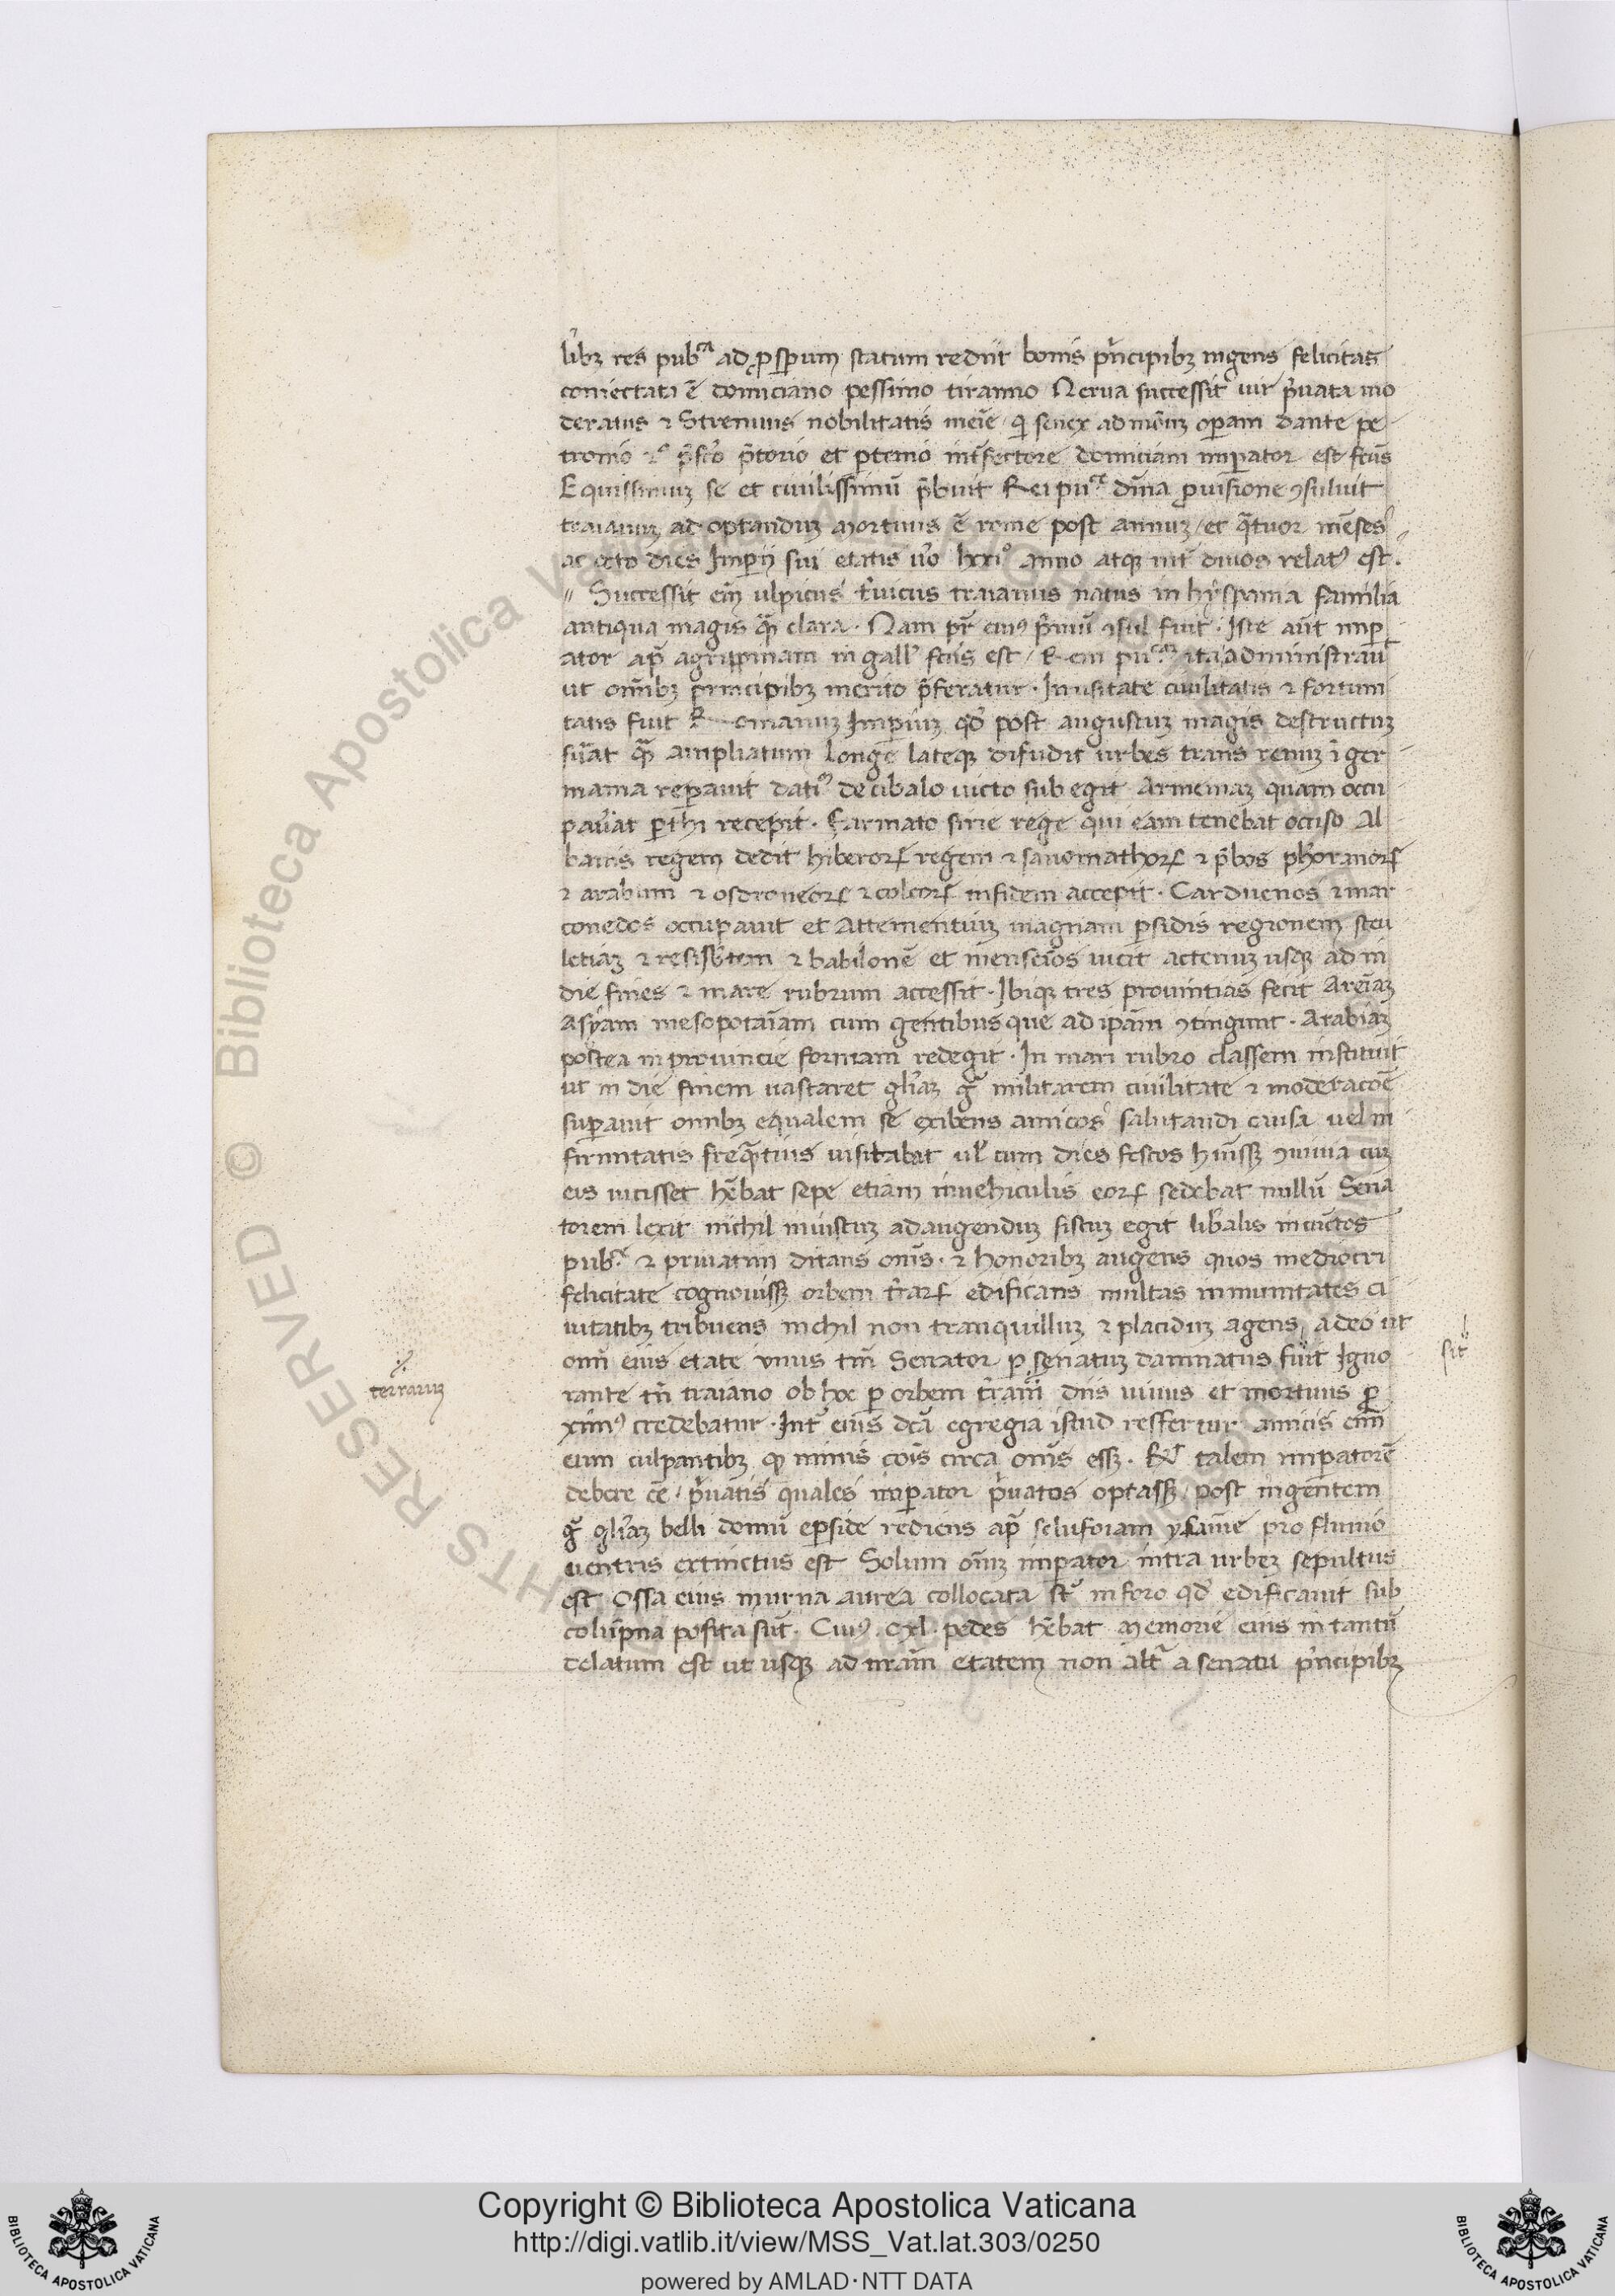 lib̾ꝫ res pubᶜᵃ ad ꝓsꝑum statum rediit bonis pͥncipibꝫ ingens felicitas
coniectata ē domiciano pessimo tiranno Nerua successit uir pͥuata mo
deratus ⁊ Strenuus nobilitatis meīe qͥ senex admōum oꝑam dante pe
tronio p̄fcō p̄torio et ptenio int̄fectore domiciani imꝑator est fc̄us
Equissimuꝫ se et ciuilissimū p̄buit Rei puᶜᵉ diīna ꝓuisione ꝯsuluit
traianuꝫ adoptanduꝫ Mortuus ē rome post annuꝫ et qᷓtuor mēses
ac octo dies Imꝑij sui etatis uͦo lxxiͦ anno atqꝫ int̾ diuos relatꝰ est.
Successit eīm ulpicus t̾uicus traianus natus in hyspania familia
antiqua magis qᷓꝫ clara. Nam pr̄ eiuꝰ pͥmū ꝯsul fuit. Iste aūt imp
ator ap̄ agrippinam in gall̾ fc̄us est / Rem puᶜᵃꝫ ita administrauͥt
ut omībꝫ principibꝫ merito p̄feratur. Inusitate ciuilitatis ⁊ fortitu
tatis fuit Romanuꝫ Impiuꝫ qd̾ post augustuꝫ magis destructuꝫ
fūat qᷓꝫ ampliatum longe lateqꝫ difudit urbes trans renuꝫ ī ger
mania reꝑauit datiꝰ decibalo uicto subegit Armeniaꝫ quam occu
pau̾at ꝑthi recepit. Earmato sirie rege qui eam tenebat occiso Al
banis regem dedit hiberorꝝ regem ⁊ sauomathorꝝ ⁊ p̄bos phoranorꝝ
⁊ arabum ⁊ osdroneorꝝ ⁊ colcorꝝ infidem accepit. Carduenos ⁊ mar
conedos occupauit et Attementiuꝫ magnam ꝑsidis regionem steu
letiaꝫ ⁊ resisb̾tem ⁊ babilonē et menseīos uicit actenuꝫ usqꝫ ad in
die fines ⁊ mare rubrum accessit. Ibiqꝫ tres prouintias fecit Areīaꝫ
Asyam mesopotaīam cum gentibus que ad ipām ꝯtingunt. Arabiaꝫ
postea in prouincie formam redegit. In mari rubro classem instituit
ut in die finem uastaret gl̾iaꝫ gͣ militarem ciuilitate ⁊ moderacōe
suꝑauit omībꝫ equalem se exibens amicos salutandi causa uel in
firmitatis freqᷓtius uisitabat ul̾ cum dies festos huīssꝫ ꝯuiuia cuꝫ
eis uicisset hēbat sepe etiam inuehiculis eorꝝ sedebat nullū Sena
torem lexit nichil iniustuꝫ ad augenduꝫ fistuꝫ egit lib̾alis in cūctos
pubᶜᵉ ⁊ priuatim ditans om̄s. ⁊ honoribꝫ augens quos mediocri
felicitate cognouissꝫ orbem t̄rarꝝ edificans multas inmunitates ci
uitatibꝫ tribuens nichil non tranquilluꝫ ⁊ placiduꝫ agens, adeo ut
om̄i eius etate vnus tm̄ Senator ꝑ senatuꝫ damnatus fuit Igno
rante tn̄ traiano ob hoc ꝑ orbem t̄ram diis uiuus et mortuus ꝑ
ximꝰ credebatur. Int̾ eius dc̄a egregia istud reffertur amicis eīm
eum culpantibꝫ qͦ nimis cōis circa om̄s essꝫ. talem imꝑatorē
debere eē pͥuatis quales imꝑator pͥuatos optassꝫ post ingentem
gͣ gl̾iaꝫ belli domū eꝑside rediens ap̄ selufoiam ysaīne pro fluuio
uentris extinctus est Solum om̄iꝫ imꝑator intra urbeꝫ sepultus
est Ossa eius inurna aurea collocata st̄ in foro qd̾ edificauit sub
colūpna posita sūt. Cuiꝰ. cxl. pedes hēbat Memorie eius in tantū
delatum est ut usqꝫ ad nr̄am etatem non alit̾ a senatu pͥncipibꝫ
terraruꝫ
sit
© Biblioteca Apostolica Vaticana
RESERVED
Copyright © Biblioteca Apostolica Vaticana
http://digi.vatlib.it/view/MSS_Vat.lat.303/0250
powered by AMLAD·NTT DATA
BIBLIOTECA APOSTOLICA VATICANA
BIBLIOTECA APOSTOLICA VATICANA